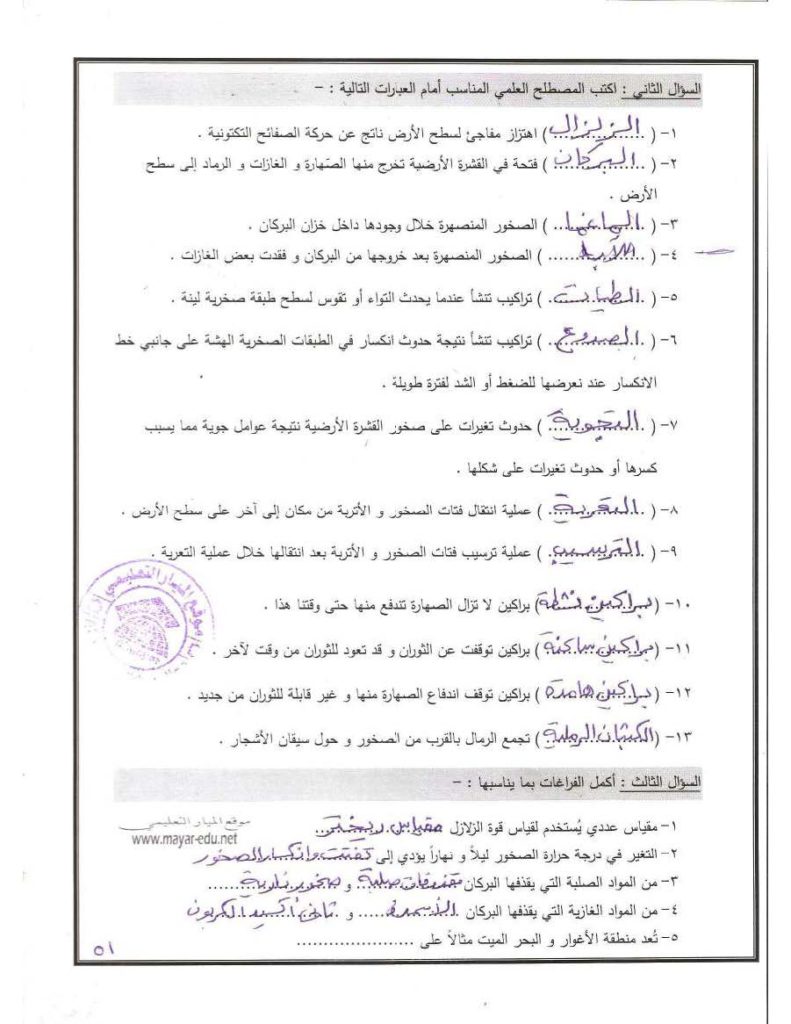 السؤال الثاني : اكتب المصطلح العلمي المناسب أمام العبارات التالية : -
١- ( الزلزال ) اهتزاز مفاجئ لسطح الأرض ناتج عن حركة الصفائح التكتونية .
٢- ( البركان ) فتحة في القشرة الأرضية تخرج منها الصّهارة و الغازات و الرماد إلى سطح
الأرض .
٣- ( الماغما ) الصخور المنصهرة خلال وجودها داخل خزان البركان .
٤- ( اللآبة ) الصخور المنصهرة بعد خروجها من البركان و فقدت بعض الغازات .
٥- ( الطيات ) تراكيب تنشأ عندما يحدث التواء أو تقوس لسطح طبقة صخرية لينة .
٦- ( الصدوع ) تراكيب تنشأ نتيجة حدوث انكسار في الطبقات الصخرية الهشة على جانبي خط
الانكسار عند تعرضها للضغط أو الشد لفترة طويلة .
٧- ( التجوية ) حدوث تغيرات على صخور القشرة الأرضية نتيجة عوامل جوية مما يسبب
كسرها أو حدوث تغيرات على شكلها .
٨- ( التعرية ) عملية انتقال فتات الصخور و الأتربة من مكان إلى آخر على سطح الأرض .
٩- ( الترسيب ) عملية ترسيب فتات الصخور و الأتربة بعد انتقالها خلال عملية التعرية .
١٠- ( براكين نشطة ) براكين لا تزال الصهارة تتدفع منها حتى وقتنا هذا .
١١- ( براكين ساكنة ) براكين توقفت عن الثوران و قد تعود للثوران من وقت لآخر .
١٢- ( براكين هامدة ) براكين توقف اندفاع الصهارة منها و غير قابلة للثوران من جديد .
١٣- ( الكثبان الرملية ) تجمع الرمال بالقرب من الصخور و حول سيقان الأشجار .
السؤال الثالث : أكمل الفراغات بما يناسبها : -
١- مقياس عددي يُستخدم لقياس قوة الزلازل مقياس ريختر
موقع الميار التعليمي
www.mayar-edu.net
٢- التغير في درجة حرارة الصخور ليلاً و نهاراً يؤدي إلى تفتت وانكسار الصخور
٣- من المواد الصلبة التي يقذفها البركان مقذوفات صلبة و صخور نارية
٤- من المواد الغازية التي يقذفها البركان و ثاني أكسيد الكربون
٥- تُعد منطقة الأغوار و البحر الميت مثالاً على ......................
٥١
موقع الميار التعليمي